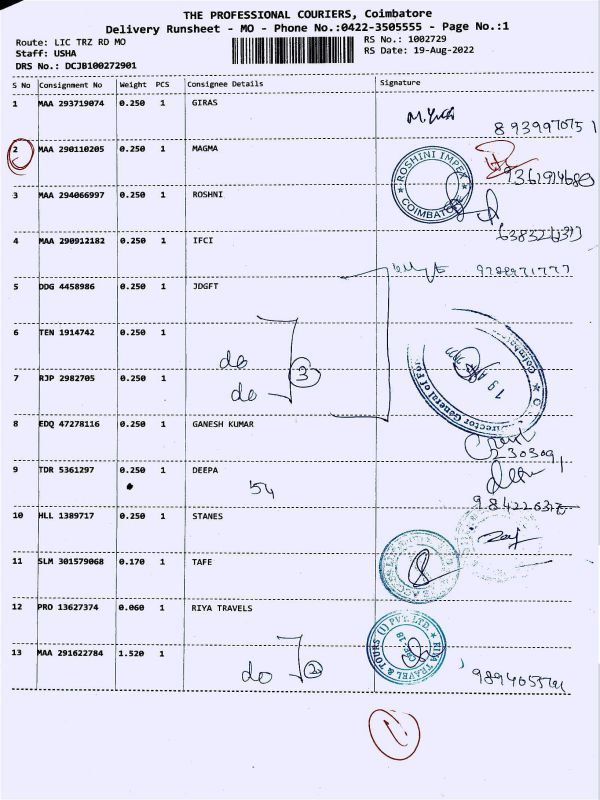 THE PROFESSIONAL COURIERS, Coimbatore
Delivery Runsheet - MO - Phone No.:0422-3505555 - Page No.:1
Route: LIC TRZ RD MO
RS No.: 1002729
Staff: USHA
RS Date: 19-Aug-2022
DRS No.: DCJB100272901
S No Consignment No Weight PCS Consignee Details Signature
1 MAA 293719074 0.250 1 GIRAS
2 MAA 290110205 0.250 1 MAGMA
ROSHINI IMPEX COIMBATORE
3 MAA 294066997 0.250 1 ROSHNI
4 MAA 290912182 0.250 1 IFCI
5 DDG 4458986 0.250 1 JDGFT
6 TEN 1914742 0.250 1
do
3
7 RJP 2982705 0.250 1
do
8 EDQ 47278116 0.250 1 GANESH KUMAR
2303091
9 TDR 5361297 0.250 1 DEEPA
10 HLL 1389717 0.250 1 STANES
11 SLM 301579068 0.170 1 TAFE
12 PRO 13627374 0.060 1 RIYA TRAVELS
TRAVEL & TOURS (I) PVT. LTD.
13 MAA 291622784 1.520 1
do 2